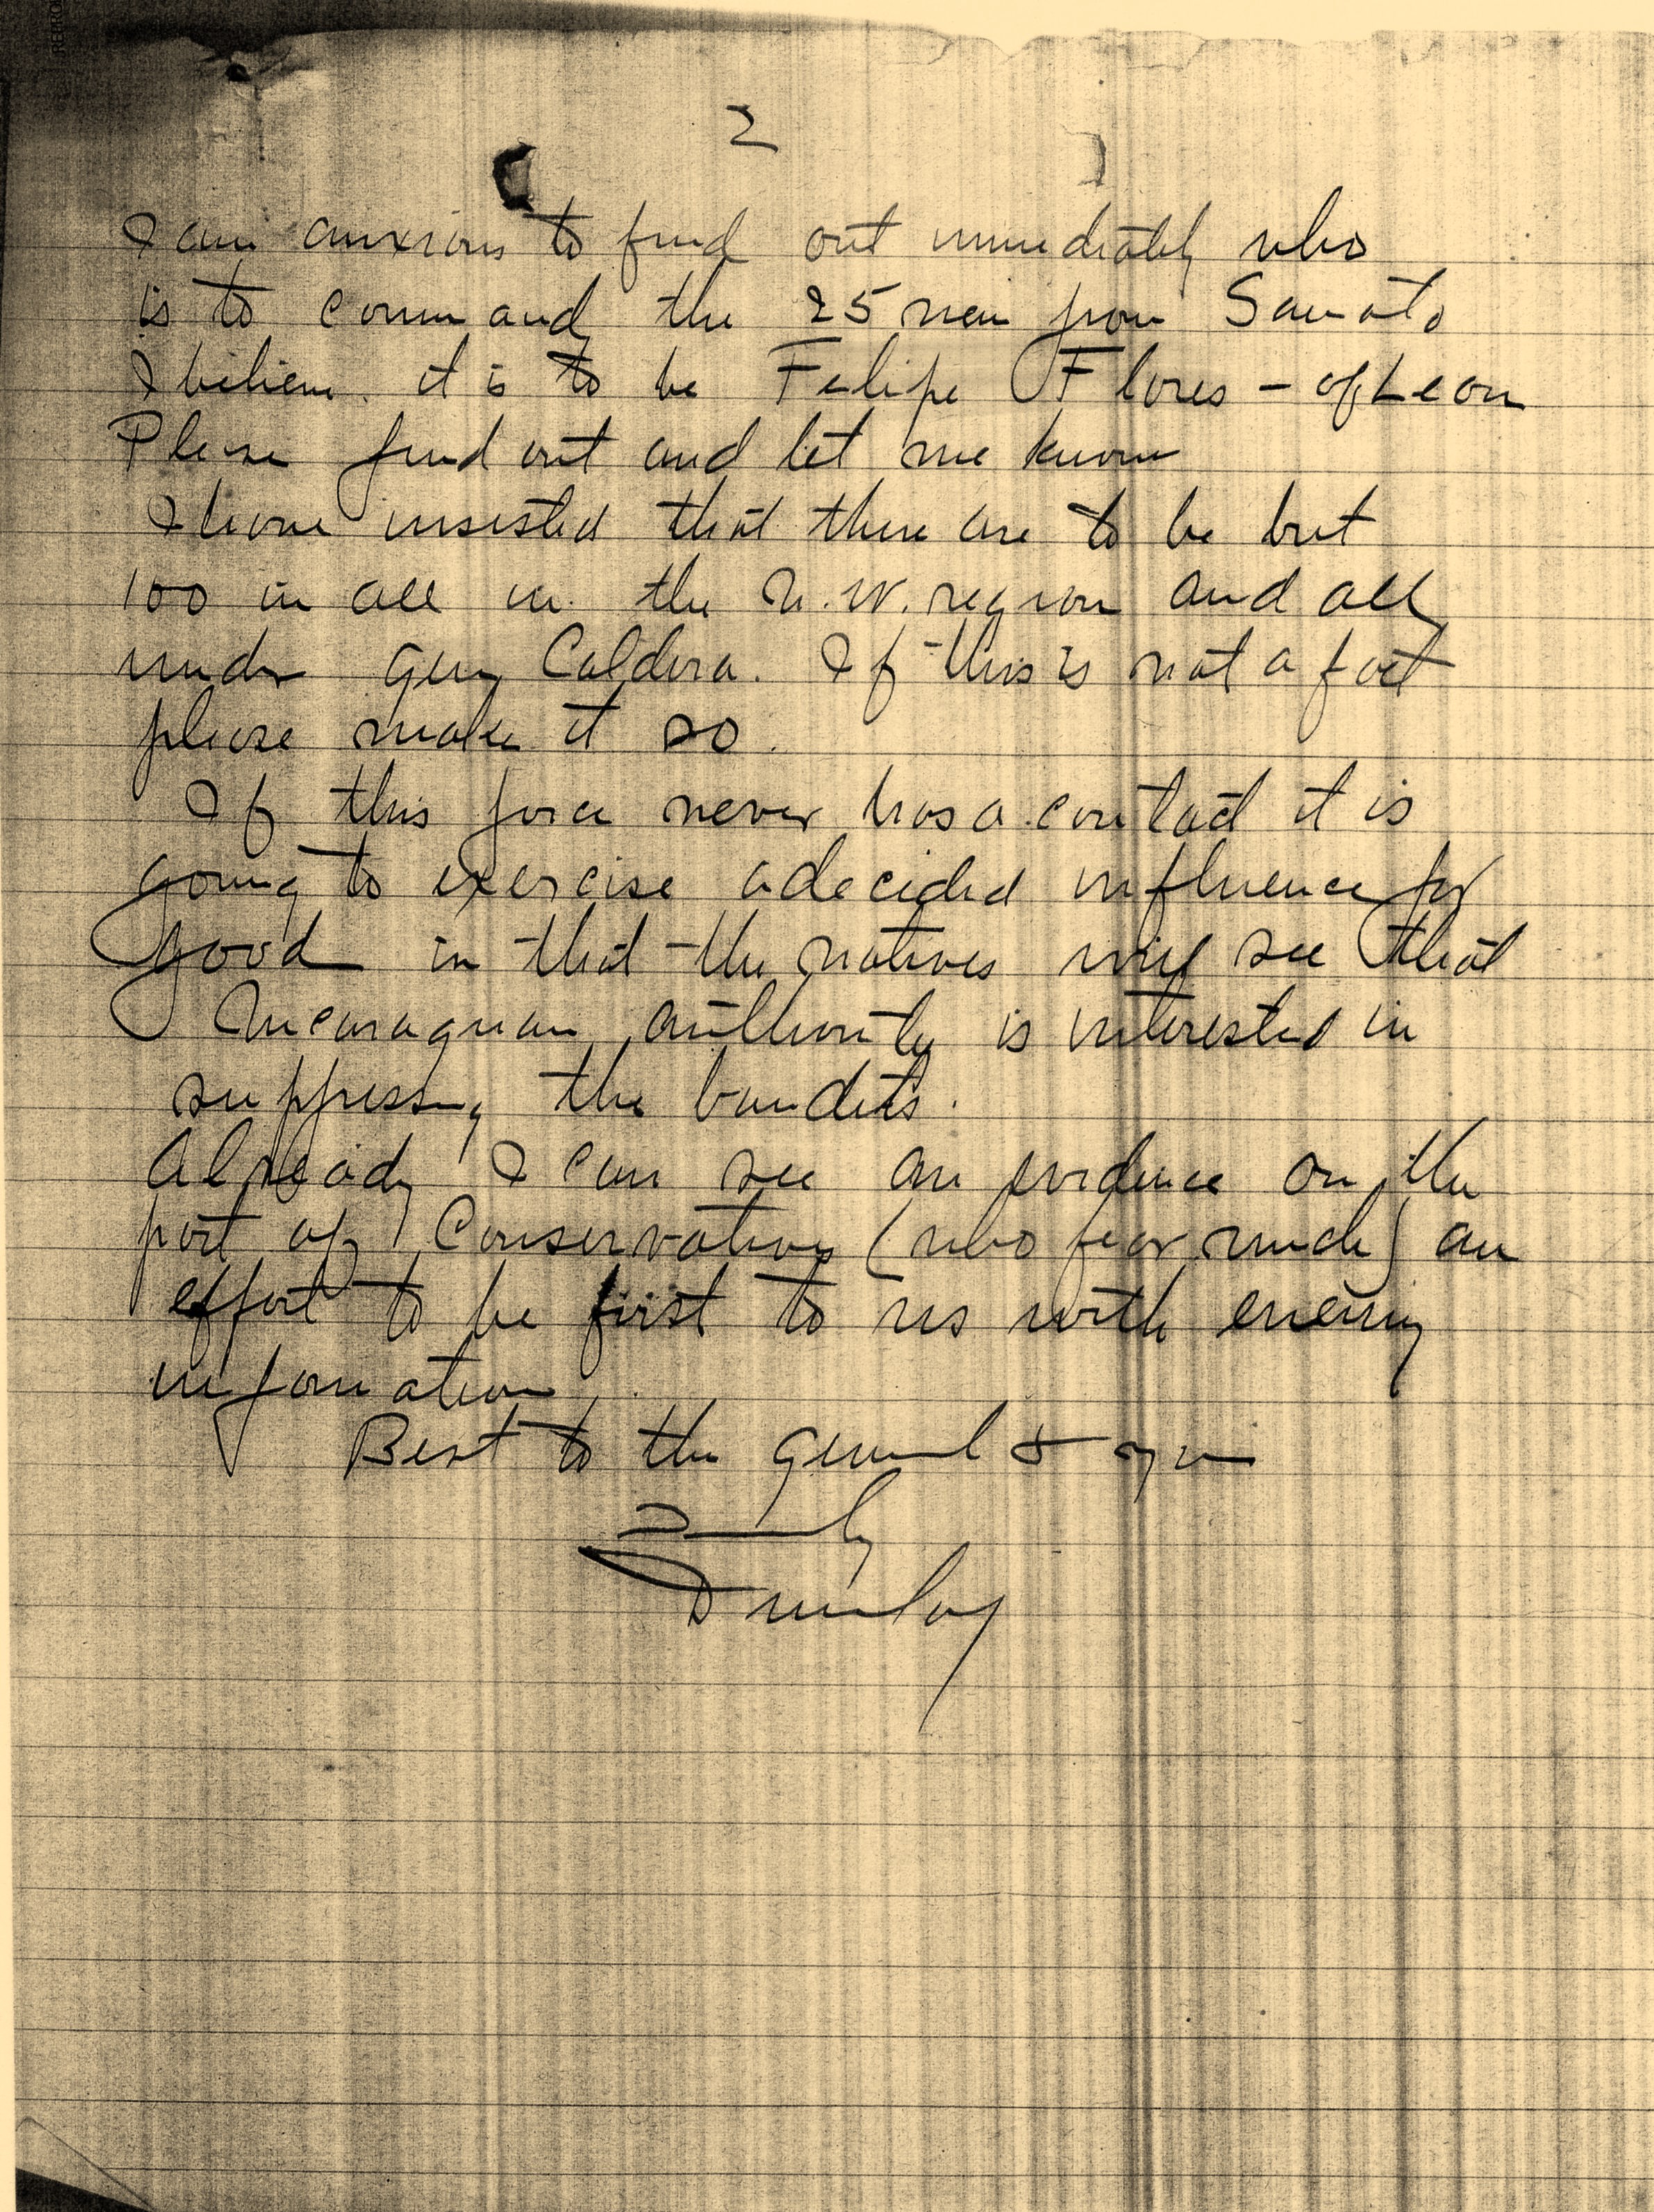 2
I am anxious to find out immediately who
is to command the 25 men from Somoto
I believe it is to be Felipe Flores - of Leon
Please find out and let me know
I have insisted that there are to be but
100 in all in the N.W. region and all
under Gen Caldera. If this is not a fact
please make it so.
If this force never has a contact it is
going to exercise a decided influence for
good in that the natives will see that
Nicaraguan authority is interested in
suppressing the bandits.
Already I can see an evidence on the
part of Conservatives (who fear much) an
effort to be first to us with enemy
information.
Best to the General & you
Dunlap